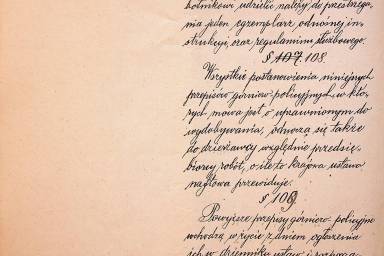 botnikowi, udzielić należy do przestrzega-
nia jeden egzemplarz odnośnej in-
strukcyi, oraz regulaminu służbowego.
§ 107. 108.
Wszystkie postanowienia niniejszych
przepisów górniczo-policyjnych, w któ-
rych mowa jest o uprawnionym do
wydobywania, odnoszą się także
do dzierżawcy względnie przedsię-
biorcy robót, o ile to krajowa ustawa
naftowa przewiduje.
§ 109.
Powyższe przepisy górniczo-policyjne
wchodzą w życie z dniem ogłoszenia
ich w dzienniku ustaw i rozporzą-